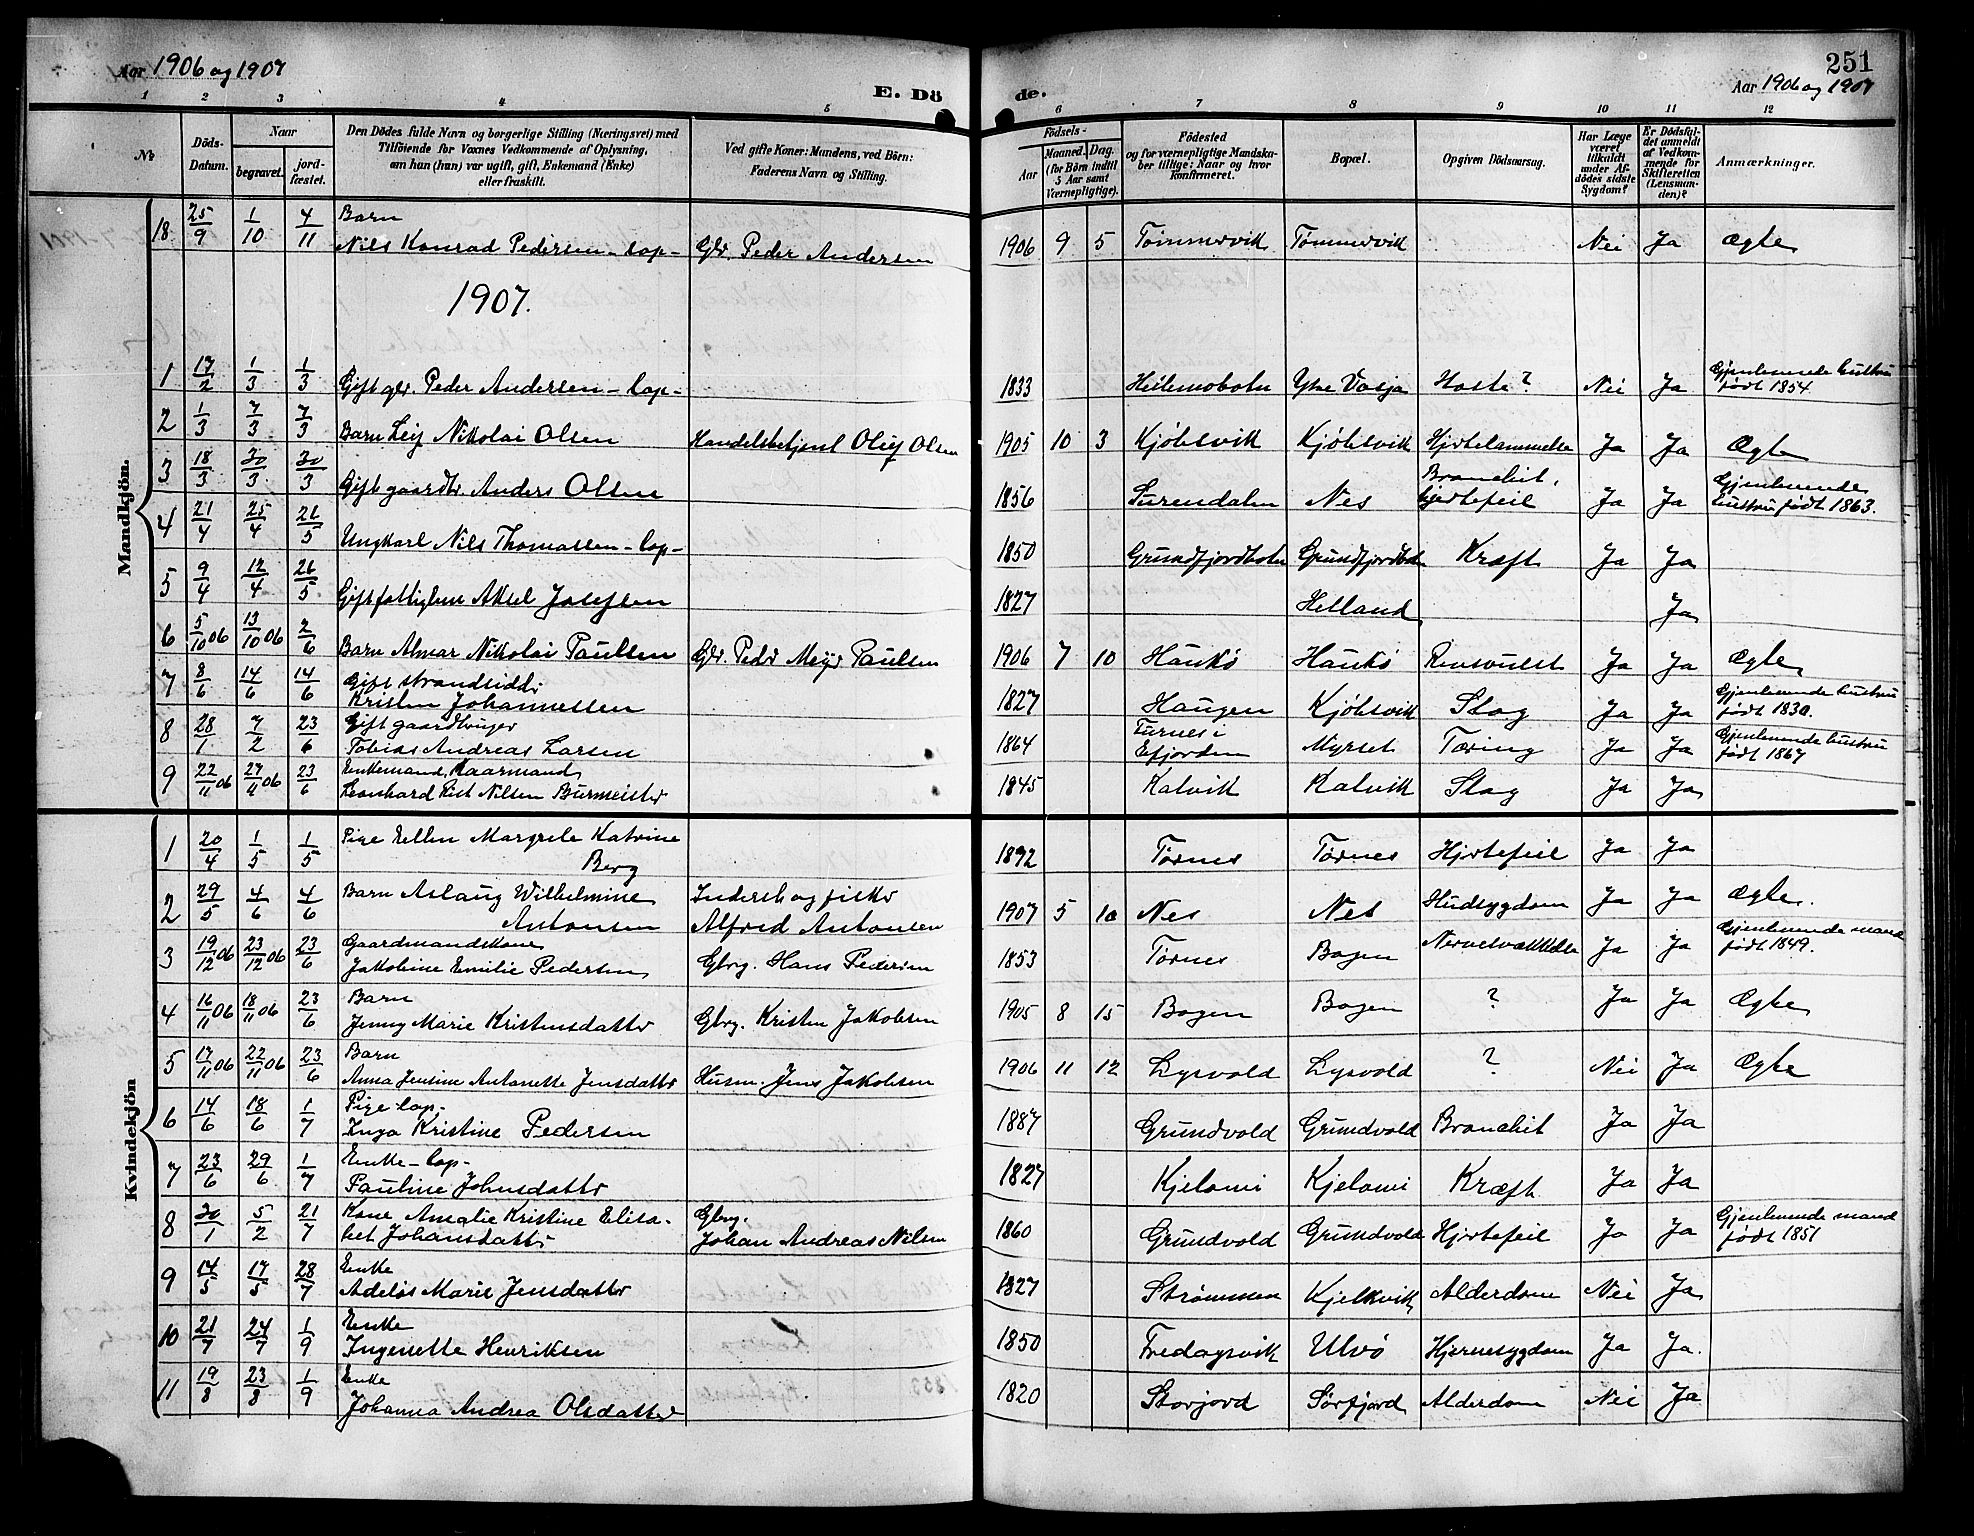 Aar 1906 og 1907
E. Dö
de.
251
Aar 1906 og 1907
1 2 3 4 5 6 7 8 9 10 11 12
№
Döds-Datum.
Naar
begravet.
jord-fæstet.
Den Dödes fulde Navn og borgerlige Stilling (Næringsvei) med
Tilföiende for Voxnes Vedkommende af Oplysning,
om han (hun) var ugift, gift, Enkemand (Enke)
eller fraskilt.
Ved gifte Koner: Mandens, ved Börn:
Faderens Navn og Stilling.
Födsels-
Aar
Maaned. Dag.
(for Börn indtil
5 Aar samt
Værnepligtige).
Födested
og for værnepligtige Mandska-
ber tillige: Naar og hvor
konfirmeret.
Bopæl.
Opgiven Dödsaarsag.
Har Læge
været
tilkaldt
under Af-
dödes sidste
Sygdom?
Er Dödsfal-
det anmeldt
af Vedkom-
mende for
Skifteretten
(Lensman-
den)?
Anmærkninger.
Mandkjön.
18 25/9 1/10 4/11 Barn Nils Konrad Pedersen - lap - Gbr. Peder Andersen 1906 9 5 Tømmervik Tømmervik Nei Ja Ægte
1907.
1 17/2 1/3 1/3 Gift gbr. Peder Andersen - lap - 1833 Hellemobotn Ytre Vasja Hoste? Nei Ja Gjenlevende hustru født 1854.
2 1/3 7/3 7/3 Barn Leif Nikolai Olsen Handelsbetjent Oluf Olsen 1905 10 3 Kjøbsvik Kjøbsvik Hjertelammelse Ja Ja Ægte
3 18/3 30/3 30/3 Gift gaardbr. Anders Olsen 1856 Surendalen Nes Bronchit, hjertefeil Ja Ja Gjenlevende hustru født 1863.
4 21/4 25/4 26/5 Ungkarl Nils Thomassen - lap - 1850 Grundfjordbotn Grundfjordbotn Kræft Ja Ja
5 9/4 12/4 26/5 Gift fattiglem Aksel Josefsen 1827 Helland Ja
6 5/10 06 13/10 06 2/6 Barn Almar Nikolai Paulsen Gbr. Peder Meyer Paulsen 1906 7 10 Haukø Haukø Ja Ja Ægte
7 8/6 14/6 14/6 Gift strandsidder Kristen Johannessen 1827 Haugen Kjøbsvik Slag Ja Ja Gjenlevende hustru født 1830.
8 28/1 7/2 23/6 Gift gaardbruger Tobias Andreas Larsen 1864 Turnes i Efjorden Myrset Tæring Ja Ja Gjenlevende hustru født 1867
9 22/11 06 27/11 06 23/6 Enkemand, Kaarmand Leonhard Kist Nilsen Burmeister 1845 Kalvik Kalvik Slag Ja Ja
Kvindekjön
1 20/4 1/5 1/5 Pige Ellen Margrete Katrine Berg 1892 Tørnes Tørnes Hjertefeil Ja Ja
2 29/5 4/6 4/6 Barn Aslaug Wilhelmine Antonsen Inderst og fisker Alfred Antonsen 1907 5 10 Nes Nes Hudsygdom Ja Ja Ægte.
3 19/12 06 23/12 06 23/6 Gaardmandskone Jakobine Emilie Pedersen Gbrg. Hans Pedersen 1853 Tørnes Bogen Nervesvækkelse Ja Ja Gjenlevende mand født 1849.
4 16/11 06 18/11 06 23/6 Barn Jenny Marie Kristensdatter Gbrg. Kristen Jakobsen 1905 8 15 Bogen Bogen ? Ja Ja Ægte
5 17/11 06 22/11 06 23/6 Barn Anna Jensine Antonette Jensdatter Husm. Jens Jakobsen 1906 11 12 Lysvold Lysvold ? Nei Ja Ægte
6 14/6 18/6 1/7 Pige lap - Inga Kristine Pedersen 1887 Grundvold Grundvold Bronchit Ja Ja
7 23/6 29/6 1/7 Enke - lap - Pauline Johnsdatter 1827 Kjelami Kjelami Kræft Ja Ja
8 30/1 5/2 21/7 Kone Amalie Kristine Elisabet Johansdatter Gbrg. Johan Andreas Nilsen 1860 Grundvold Grundvold Hjertefeil Ja Ja Gjenlevende mand født 1851
9 14/5 17/5 28/7 Enke Adelos Marie Jensdatter 1827 Strømmen Kjelkvik Alderdom Nei Ja
10 21/7 24/7 1/9 Enke Ingenette Henriksen 1850 Fredagsvik Ulvø Hjernesygdom Ja Ja.
11 19/8 23/8 1/9 Enke Johanna Andrea Olsdatter 1820 Storjord Sørfjord Alderdom Nei Ja